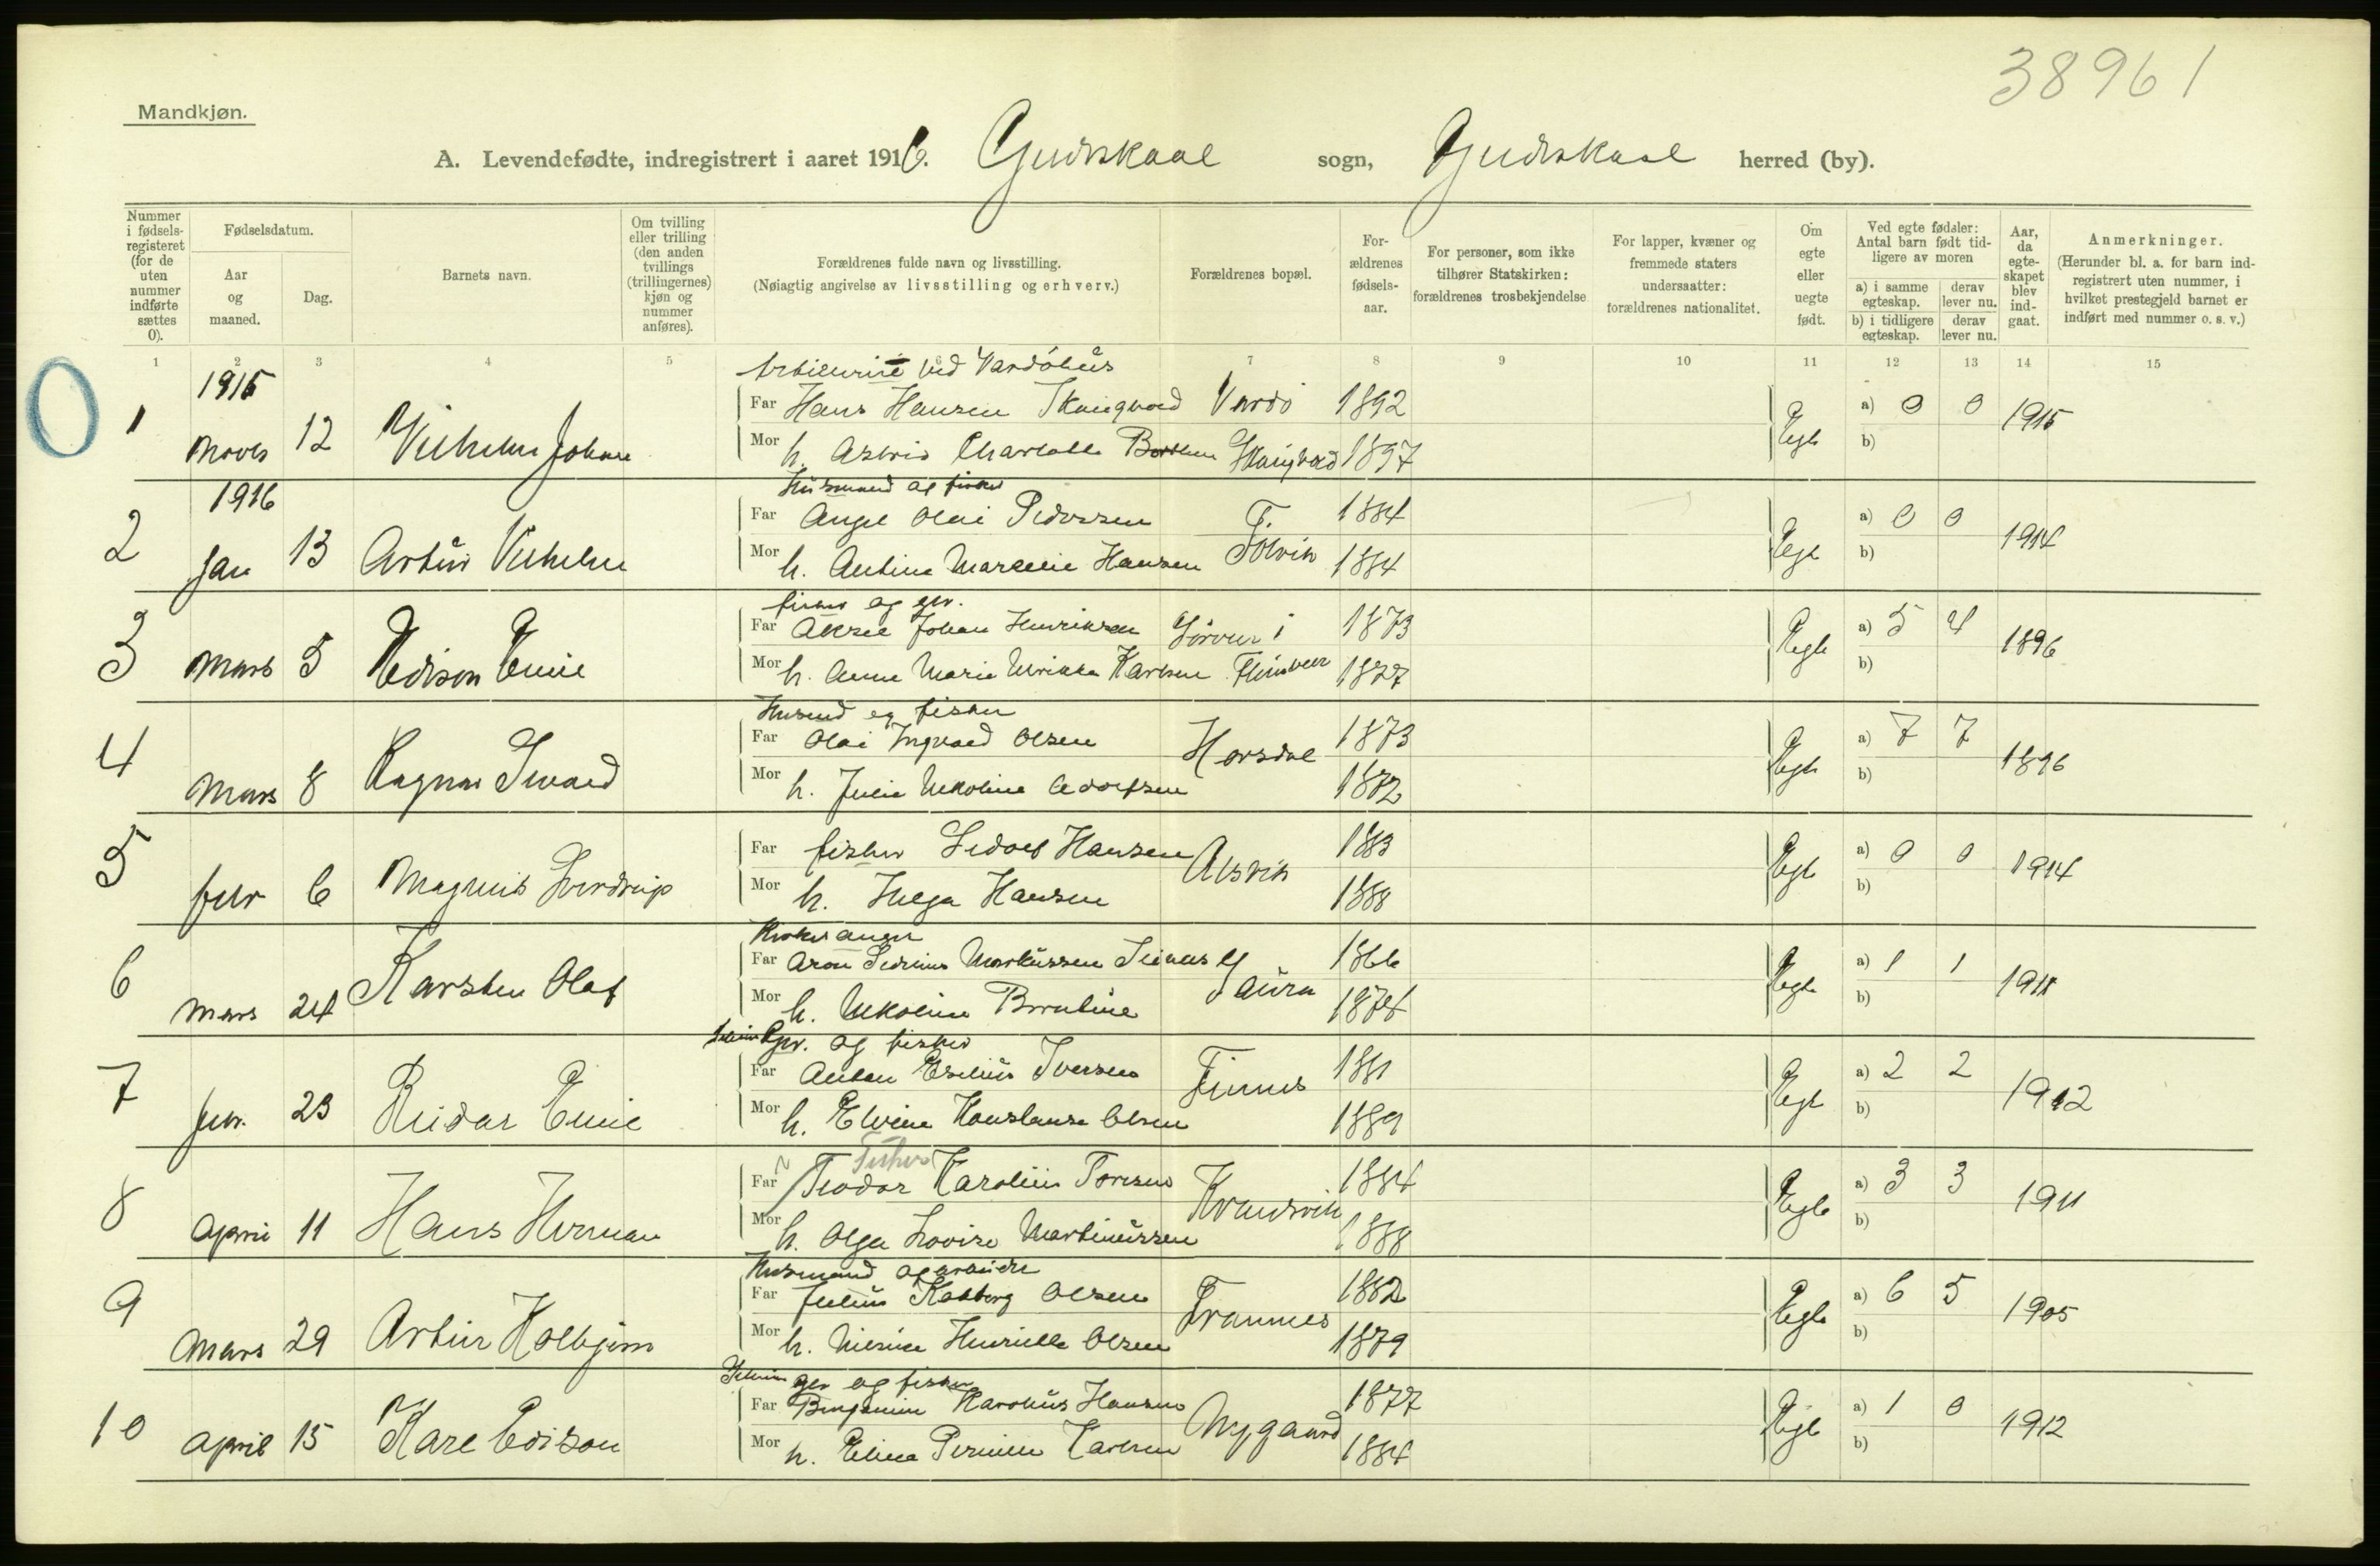 38961
Mandkjøn.
A. Levendefødte, indregistrert i aaret 1916. Gudskaal sogn, Gudskaal herred (by).
Nummer i fødselsregisteret (for de uten nummer indførte sættes 0).
Fødselsdatum.
Aar og maaned.
Dag.
Barnets navn.
Om tvilling eller trilling (den anden tvillings (trillingernes) kjøn og nummer anføres).
Forældrenes fulde navn og livsstilling.
(Nøiagtig angivelse av livsstilling og erhverv.)
Forældrenes bopæl.
Forældrenes fødselsaar.
For personer, som ikke tilhører Statskirken: forældrenes trosbekjendelse
For lapper, kvæner og fremmede staters undersaatter: forældrenes nationalitet.
Om egte eller uegte født.
Ved egte fødsler: Antal barn født tidligere av moren
a) i samme egteskap.
derav lever nu.
b) i tidligere egteskap.
derav lever nu.
Aar, da egteskapet blev indgaat.
Anmerkninger.
(Herunder bl. a. for barn indregistrert uten nummer, i hvilket prestegjeld barnet er indført med nummer o. s. v.)
1 2 3 4 5 6 7 8 9 10 11 12 13 14 15
0
1915 ved Vardöhus
1 12 Vilhelm Johan Far Hans Hansen Skaugvold Vardö 1892 Egte a) 0 0 1915
Mor h. Astrid Charlotte Skaugvold 1897 b)
1916 Husmand og fisker
2 Jan 13 Artur Vilhelm Far Angel Olai Pedersen 1884 Egte a) 0 0 1914
Mor h. Antine Marselie Hansen 1884 b)
fisker og gbr.
3 Mars 5 Edison Emil Far Aksel Johan Henriksen 1873 Egte a) 5 4 1896
Mor h. Anna Marie Ulrikka Karlsen 1877 b)
og fisker
4 Mars 8 Ragnar Sivald Far Olai Ingvald Olsen Horsdal 1873 Egte a) 7 7 1896
Mor h. Julie Nikoline Adolfsen 1872 b)
5 febr 6 Magnus Sverdrup Far fisker Sedolf Hansen Alsvik 1883 Egte a) 0 0 1914
Mor h. Helga Hansen 1888 b)
Kirkesanger
6 Mars 24 Karsten Olaf Far Aron Markussen Saura 1866 Egte a) 1 1 1911
Mor h. Nikoline Berntine 1874 b)
gbr. og fisker
7 febr. 23 Reidar Emil Far Anton Eselius Iversen Finnes 1881 Egte a) 2 2 1912
Mor h. Elvine Konstanse Olsen 1889 b)
Fisker
8 April 11 Hans Herman Far Teodor Karolius Toresen 1884 Egte a) 3 3 1911
Mor h. Olga Lovise Martinussen 1888 b)
Husmand og arbeider
9 Mars 29 Artur Kolbjørn Far Julius Olsen 1882 Egte a) 6 5 1905
Mor h. Olsen 1879 b)
gbr og fisker
10 April 15 Kare Edison Far Benjamin Karolius Hansen Nygaard 1877 Egte a) 1 0 1912
Mor h. Elina Pernille Karlsen 1884 b)